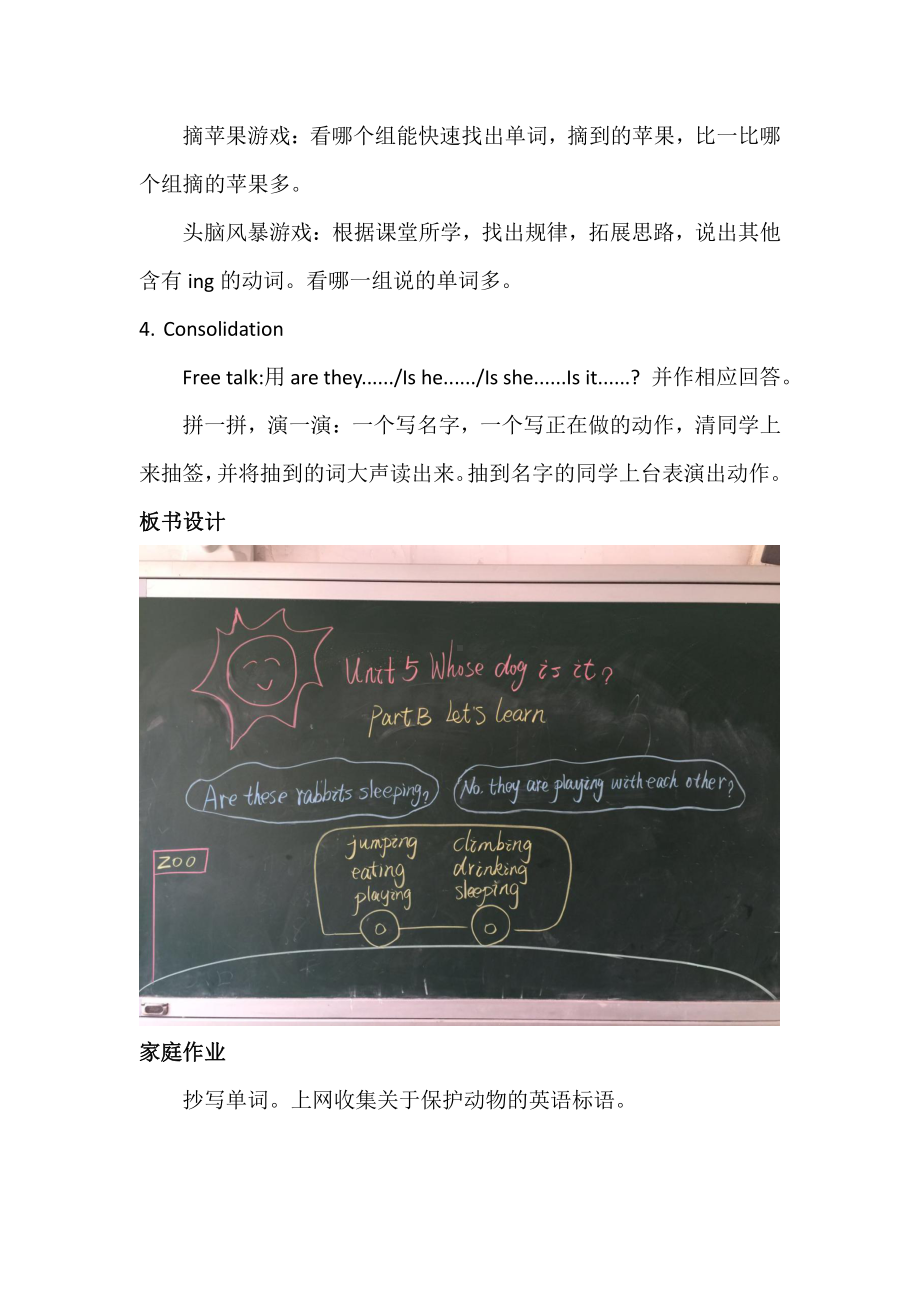 摘苹果游戏：看哪个组能快速找出单词，摘到的苹果，比一比哪
个组摘的苹果多。
头脑风暴游戏：根据课堂所学，找出规律，拓展思路，说出其他
含有 ing 的动词。看哪一组说的单词多。
4. Consolidation
Free talk:用 are they....../Is he....../Is she......Is it......? 并作相应回答。
拼一拼，演一演：一个写名字，一个写正在做的动作，清同学上
来抽签，并将抽到的词大声读出来。抽到名字的同学上台表演出动作。
板书设计
Unit 5 Whose dog is it?
Part B Let's learn
Are these rabbits sleeping?
No. they are playing with each other?
jumping climbing
ZOO
eating drinking
playing sleeping
家庭作业
抄写单词。上网收集关于保护动物的英语标语。